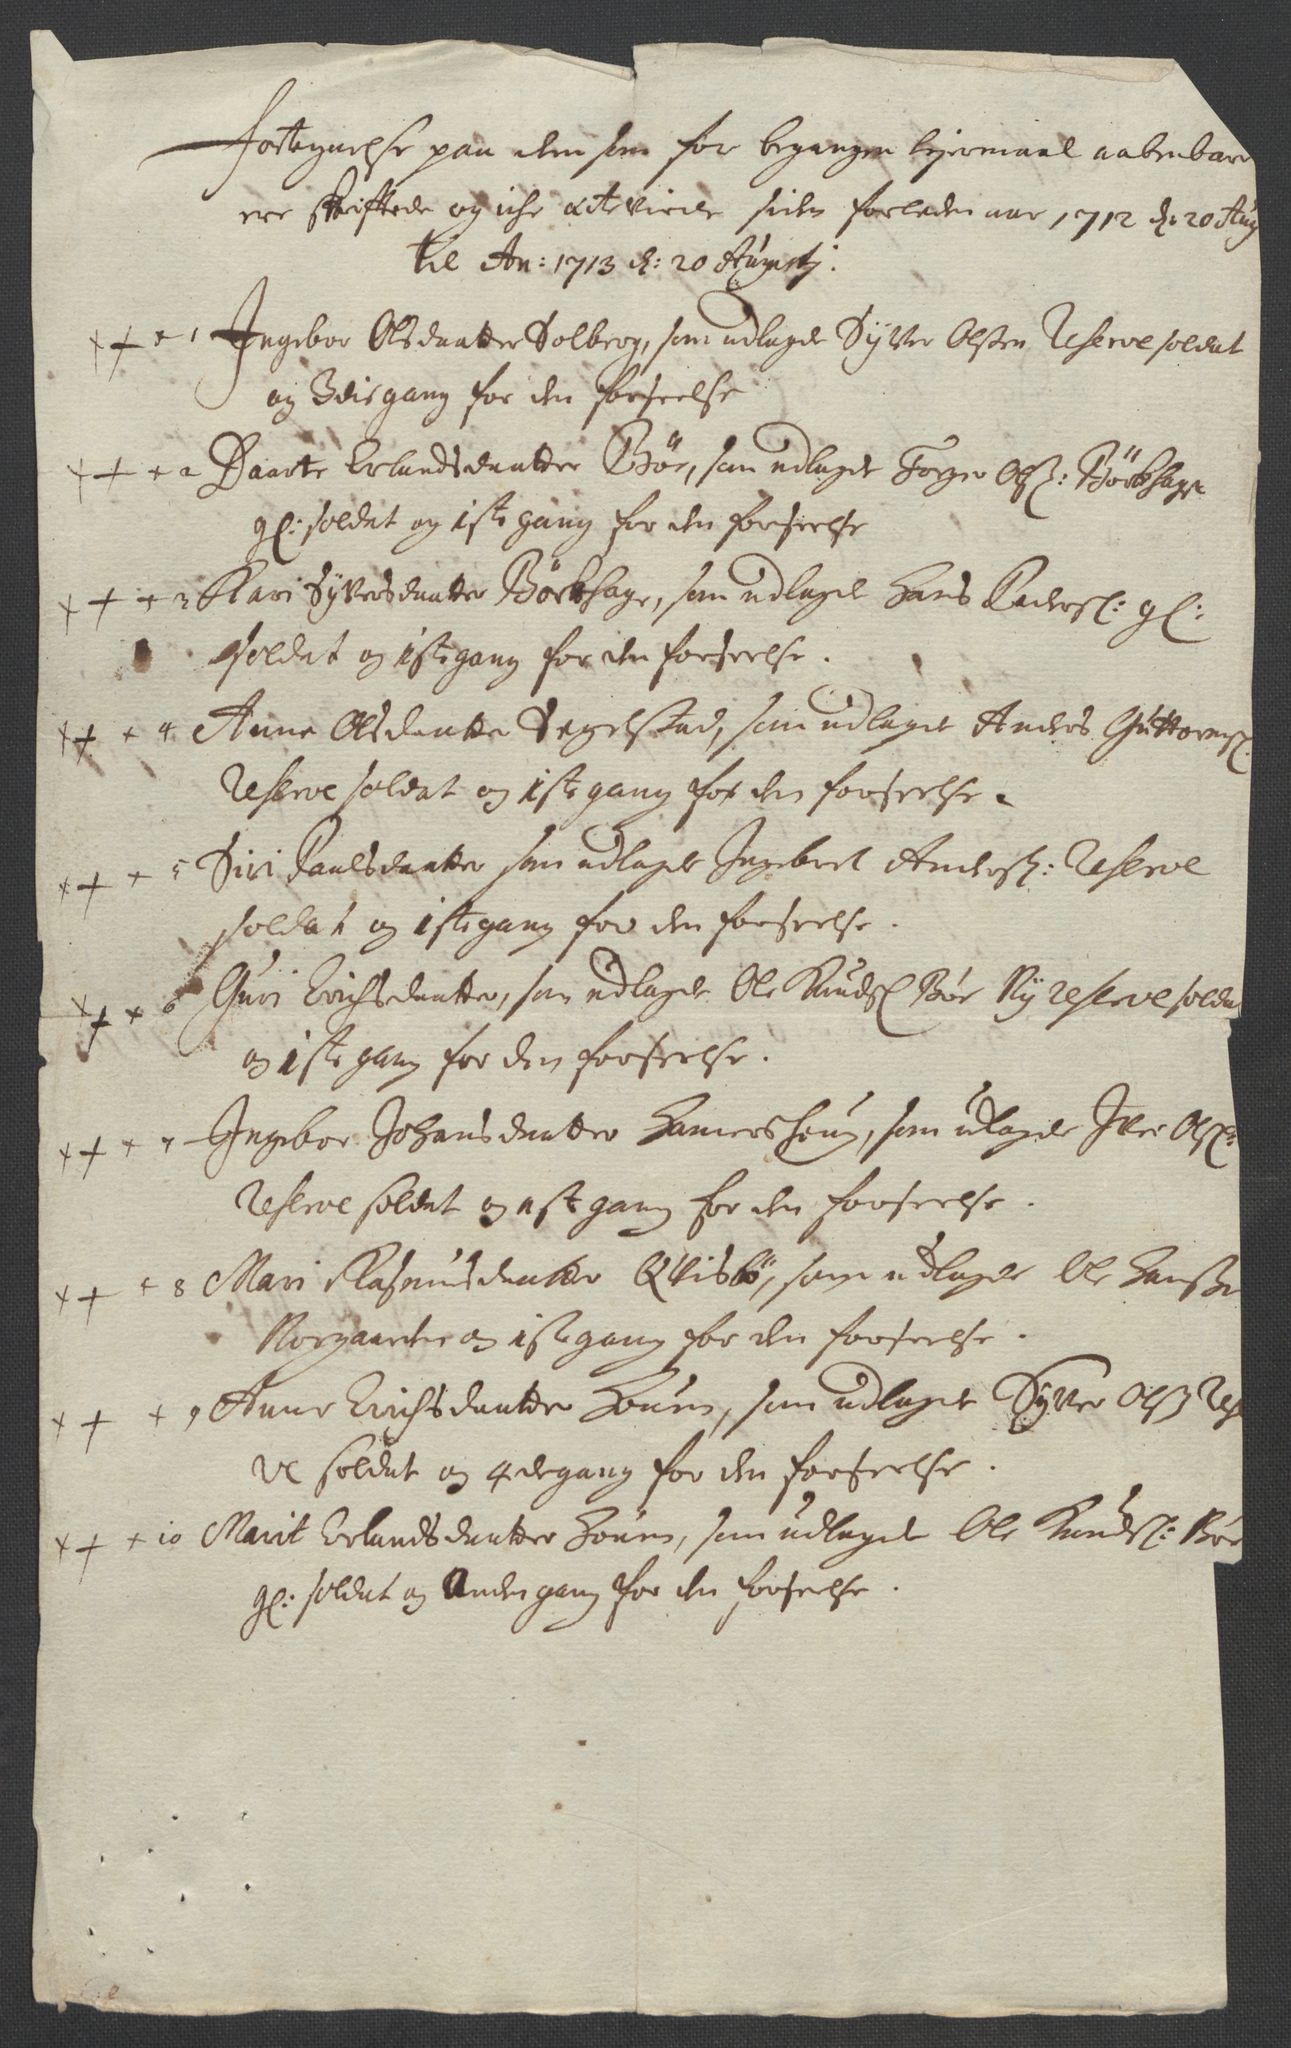 Fortegnelse paa dem som for begangen leiermaal aabenbare
ere skriftede og iche ecteviede siden forleden aar 1712 d: 20 Aug
til An: 1713 d: 20 Augustj.
1 Ingebor Olsdaatter Solberg, som udlagde Syver Olsen Reserve soldat
og 3die gang for den forseelse
2 Daarte Erlandsdaatter Böe, som udlagde Torger Ols: Börkhage
gl: soldat og 1ste gang for den forseelse
3 Kari Syversdaatter Börkhage, som udlagde Hans Peders: gl:
soldat og 1ste gang for den forseelse.
4 Anne Olsdaatter Segelstad, som udlagde Anders Guttorms:
Reserve soldat og 1ste gang for den forseelse.
5 Siri Paulsdaatter som udlagde Ingebret Anders: Reserve
soldat og 1ste gang for den forseelse.
6 Guri Erichsdaatter, som udlagde Ole Knuds Böe Ny reserve solda
og 1ste gang for den forseelse.
7 Ingebor Johansdaatter Hamershoug, som udlagde Iver Ols:
Reserve soldat og 1ste gang for den forseelse.
8 Mari Rasmusdaatter Qvisbö, som udlagde Ole Hanssen
og 1ste gang for den forseelse.
9 Anne Erichsdaatter Houen, som udlagde Syver Ols Rese
ve soldat og 4de gang for den forseelse.
10 Marit Erlandsdaatter Houen, som udlagde Ole Knuds: Böe
gl: soldat og Anden gang for den forseelse.